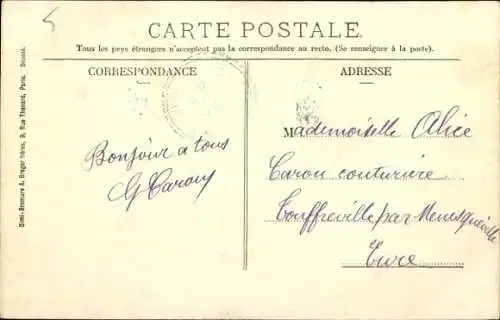 5
CARTE POSTALE
Tous les pays étrangers n'acceptent pas la correspondance au recto. (Se renseigner à la poste).
CORRESPONDANCE
ADRESSE
Bonjour a tous
G Caron
Mademoiselle Alice
Caron couturière
Touffreville par Menesqueville
Eure
Simi-Bromure A. Breger frères, 9, Rue Thénard, Paris. Déposé.